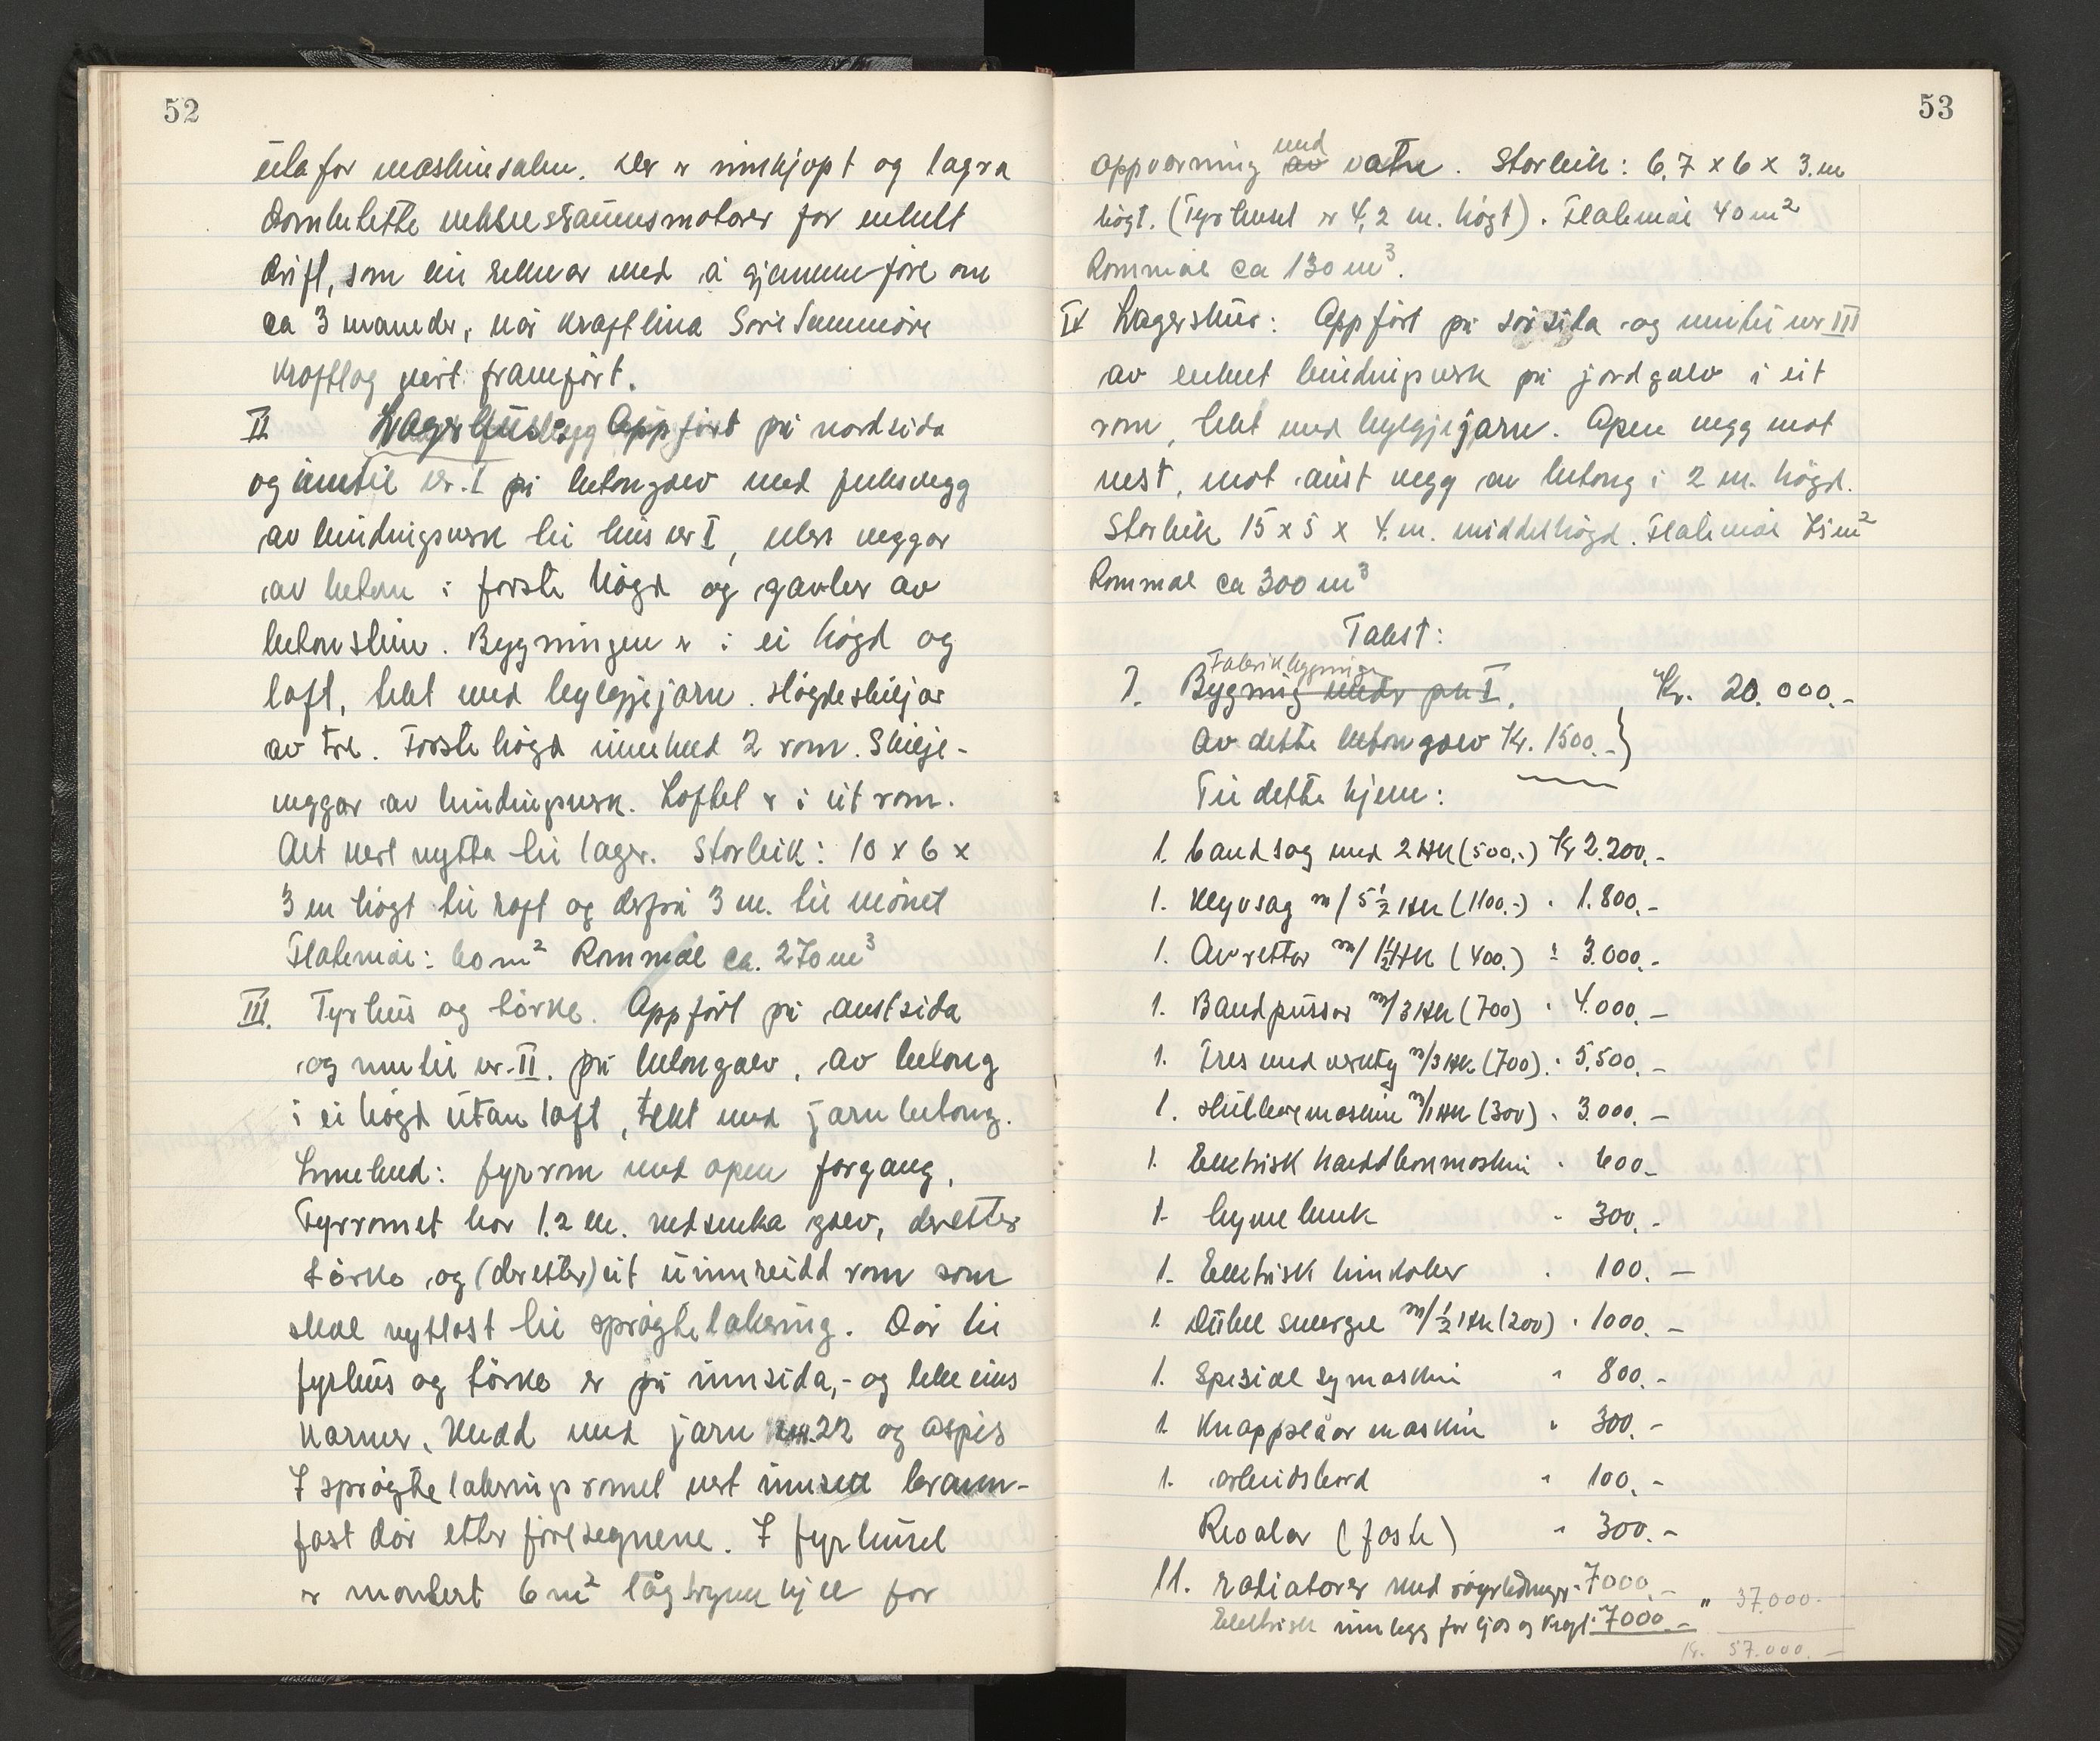 52
uta for maskinsalen. Der er innkjøpt og lagra
dombulette vekselstraumsmotorer for enkelt
drift, som ein reknar med å gjennomføre om
ca 3 maneder, når kraftlina Søre Sunnmøre
Kraftlag vert framført.
II Lagerhus: Oppført på nordsida
og inntil nr. I på betongolv med fellesvegg
av bindingsverk til hus nr I, ellers veggar
av betong i første høgd og gavler av
betonstein. Bygningen er i ei høgd og
loft, tekt med bylgjejarn. Høgdeskiljar
av tre. Første høgd inneheld 2 rom. Skilje-
veggar av bindingsverk. Loftet er i eit rom.
Alt vert nytta til lager. Storleik: 10 x 6 x
3 m høgt til raft og derfrå 3 m. til mønet
Flatemål: 60 m² Rommål ca. 270 m³
III. Fyrhus og tørke. Oppført på austsida
og inntil nr. II. på betongolv, av betong
i ei høgd utan loft, tekt med jarnbetong.
Inneheld: fyrrom med open forgang,
Fyrromet har 1.2 m. nedsenka golv, deretter
tørke og (deretter) eit uinnreidd rom som
skal nyttast til sprøytelakering. Dør til
fyrhus og tørke er på innsida, - og
karmer, kledd med jarn 22 og aspes
I sprøytelakeringsromet vert innsett brann-
fast dør etter føresegnene. I fyrhuset
er montert 6 m² lågtrykkkjel for
53
oppvarming av med vatn. Storleik: 6,7 x 6 x 3. m
høgt. (Fyrhuset er 4,2 m. høgt). Flatemål 40 m²
Rommål ca 130 m³.
IV Lagerskur: Oppført på sørsida og inntil nr III
av enkelt bindingsverk på jordgolv i eit
rom, tekt med bylgjejarn. Open vegg mot
vest, mot aust vegg av betong i 2 m. høgd.
Storleik 15 x 5 x 4. m. middelhøgd. Flatemål 75 m²
Rommål ca 300 m³
Takst:
Fabrikkbygning
1. Bygning under pkt I. Kr. 20.000.-
Av dette betongolv Kr. 1500.-}
Til dette kjem:
1. bandsag med 2 HK (500.-) Kr 2.200.-
1. Kløyvsag m/ 5½ HK (1100.-) " 1.800.-
1. Avrettar m/ 1½ HK (400.) " 3.000.-
1. Bandpussar m/3 HK (700) " 4.000.-
1. Fres med verkty m/3 HK (700). " 5.500.-
1. Hullboremaskin m/1 HK (300) " 3.000.-
1. Elektrisk handbormaskin " 600.-
1. høvelbenk " 300.-
1. Elektrisk limkoker " 100.-
1. Dubbel smergel m/½ HK (200) " 1000.-
1. Spesial symaskin " 800.-
1. Knappslåar maskin " 300.-
1. arbeidsbord " 100.-
Reolar (faste) " 300.-
11. radiatorer med røyrledninger " 7000.-
Elektrisk innlegg for ljos og kraft " 7000.- " 37.000.-
Kr. 57.000.-